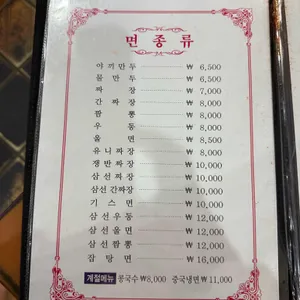 면 종 류
야끼만두 ₩ 6,500
물만두 ₩ 6,500
짜장 ₩ 7,000
간짜장 ₩ 8,000
짬뽕 ₩ 8,000
우동 ₩ 8,000
울면 ₩ 8,500
유니짜장 ₩ 8,000
쟁반짜장 ₩ 10,000
삼선짜장 ₩ 10,000
삼선간짜장 ₩ 10,000
기스면 ₩ 10,000
삼선우동 ₩ 12,000
삼선울면 ₩ 12,000
삼선짬뽕 ₩ 12,000
잡탕면 ₩ 16,000
계절메뉴 콩국수 ₩8,000 중국냉면 ₩11,000